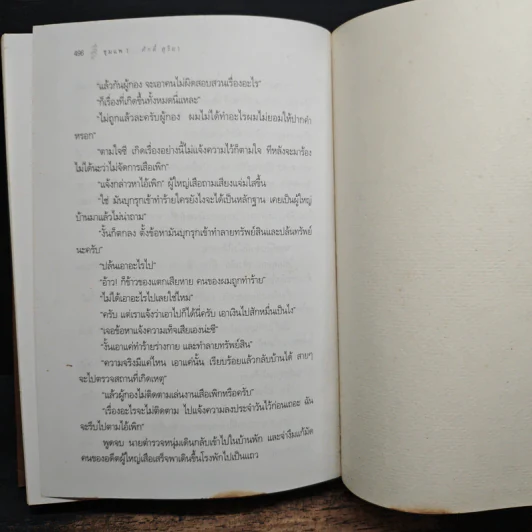 496 ขุนเพา ศักดิ์ สุริยา
"แล้วกันผู้กอง จะเอาคนไม่ผิดสอบสวนเรื่องอะไร"
"ก็เรื่องที่เกิดขึ้นทั้งหมดนี่แหละ"
"ไม่ถูกแล้วละครับผู้กอง ผมไม่ได้ทำอะไรผมไม่ยอมให้ปากคำ
หรอก"
"ตามใจซี เกิดเรื่องอย่างนี้ไม่แจ้งความไว้ก็ตามใจ ทีหลังจะมาร้อง
ไม่ได้นะว่าไม่จัดการเสือเพิก"
"แจ้งกล่าวหาไอ้เพิก" ผู้ใหญ่เสือถามเสียงแจ่มใสขึ้น
"ใช่ มันบุกรุกเข้าทำร้ายใครยังไงจะได้เป็นหลักฐาน เคยเป็นผู้ใหญ่
บ้านมาแล้วไม่น่าถาม"
"งั้นก็ตกลง ตั้งข้อหามันบุกรุกเข้าทำลายทรัพย์สินและปล้นทรัพย์
นะครับ"
"ปล้นเอาอะไรไป"
"อ้าว! ก็ข้าวของแตกเสียหาย คนของผมถูกทำร้าย"
"ไม่ได้เอาอะไรไปเลยใช่ไหม"
"ครับ แต่เราแจ้งว่าเอาไปก็ได้นี่ครับ เอาเงินไปสักหมื่นเป็นไง"
"เจอข้อหาแจ้งความเท็จเสียเองน่ะซี"
"งั้นเอาแค่ทำร้ายร่างกาย และทำลายทรัพย์สิน"
"ความจริงมีแค่ไหน เอาแค่นั้น เรียบร้อยแล้วกลับบ้านได้ สายๆ
จะไปตรวจสถานที่เกิดเหตุ"
"แล้วผู้กองไม่ติดตามเล่นงานเสือเพิกหรือครับ"
"เรื่องอะไรจะไม่ติดตาม ไปแจ้งความลงประจำวันไว้ก่อนเถอะ ฉัน
จะรีบไปตามไอ้เพิก"
พูดจบ นายตำรวจหนุ่มเดินกลับเข้าไปในบ้านพัก และจ่าโงมก็มัด
คนของอดีตผู้ใหญ่เสือเสร็จพาเดินขึ้นโรงพักไปเป็นแถว